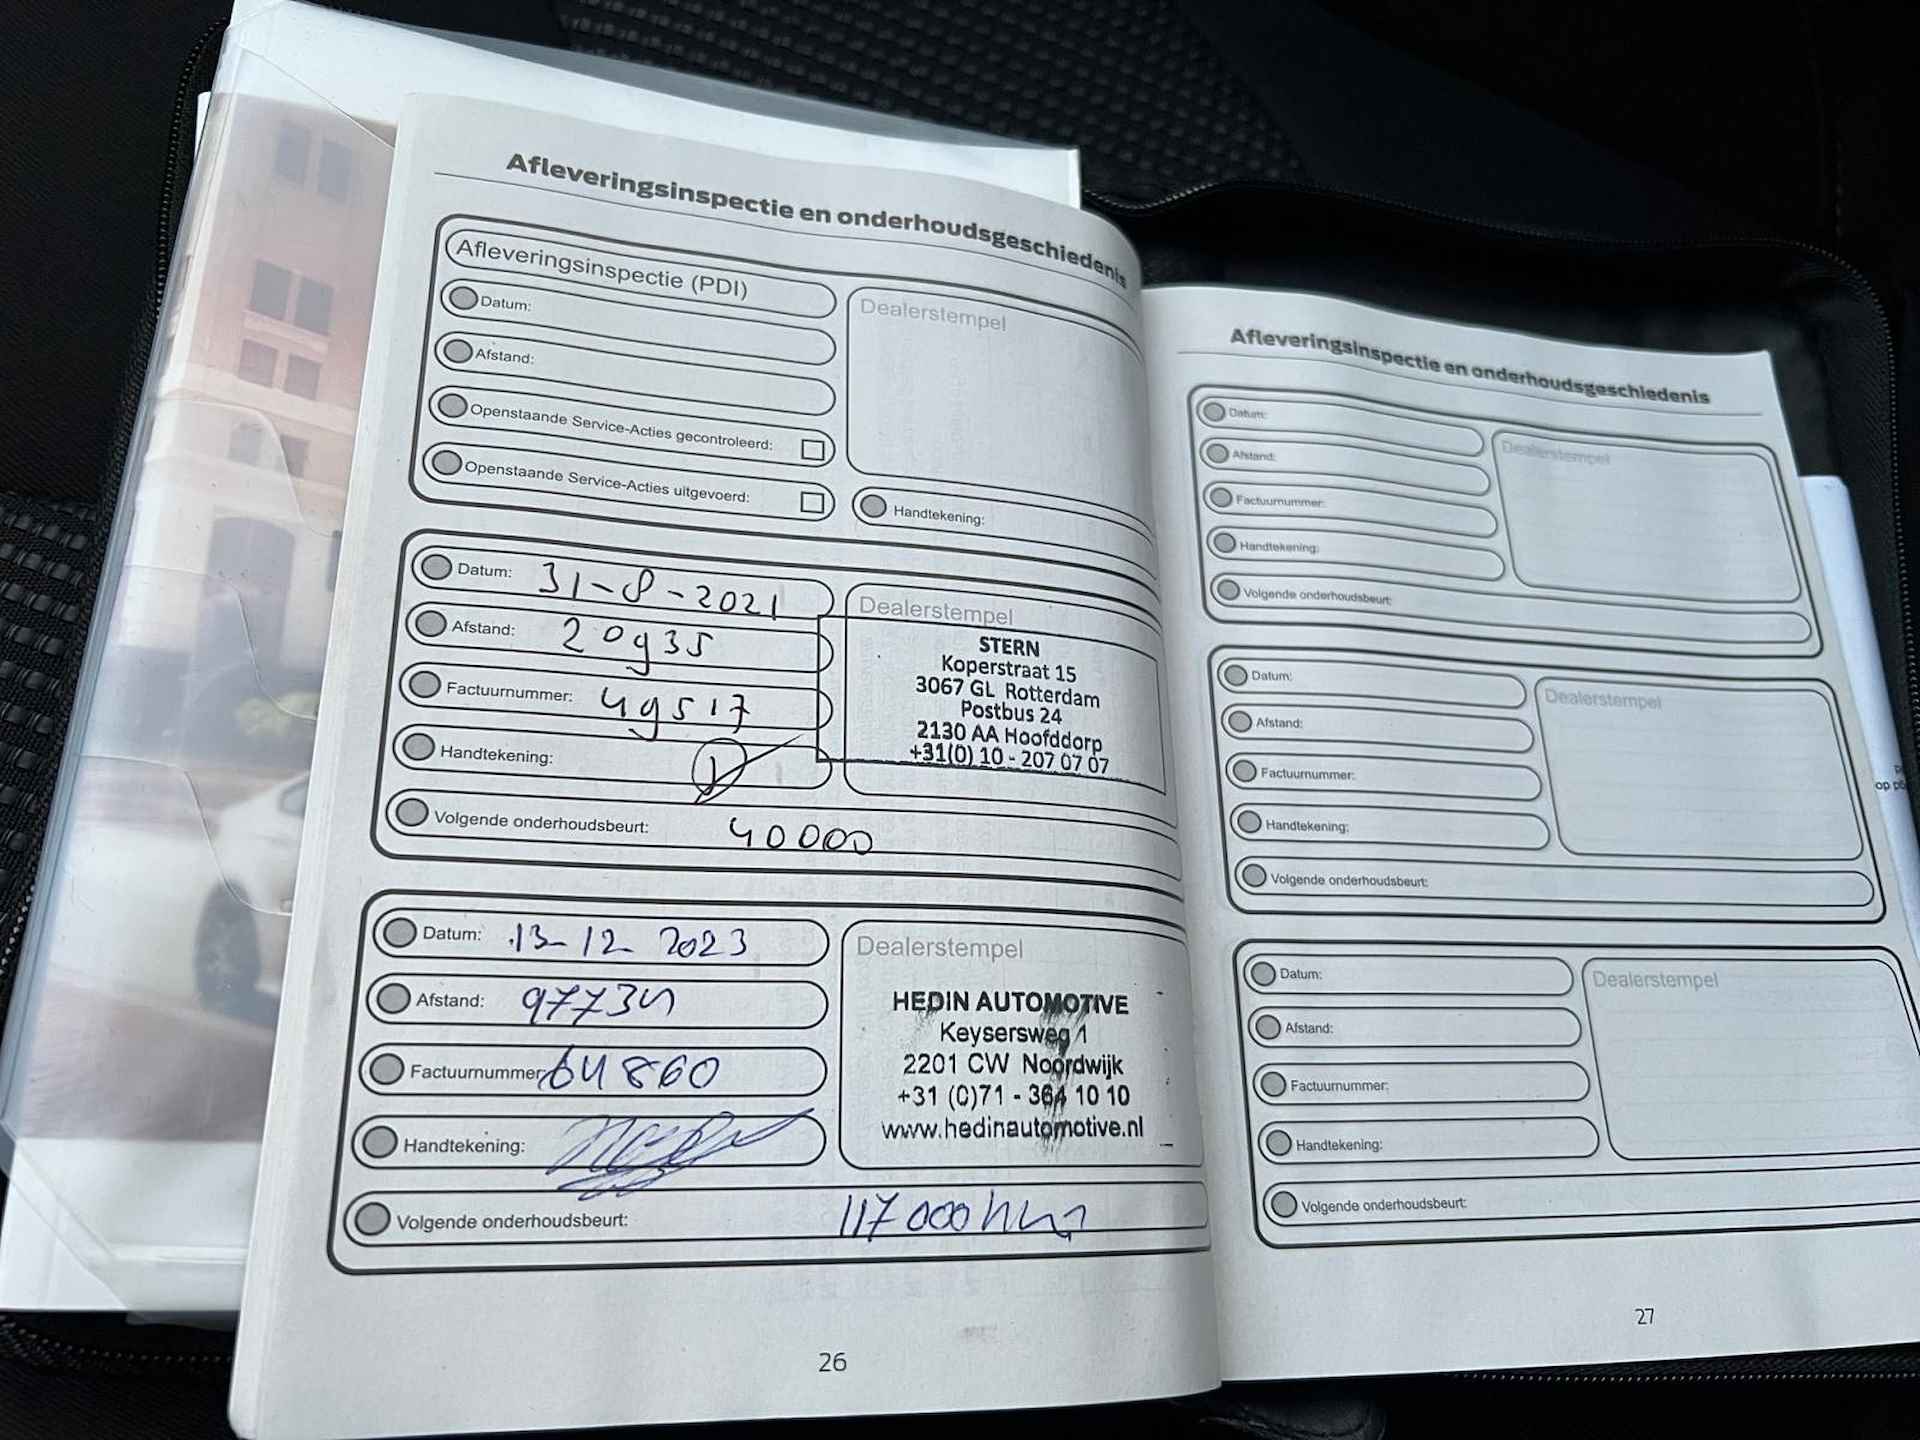 Afleveringsinspectie en onderhoudsgeschiedenis
Afleveringsinspectie (PDI)
Datum:
Afstand:
Openstaande Service-Acties gecontroleerd:
Openstaande Service-Acties uitgevoerd:
Dealerstempel
Handtekening:
Datum: 31-8-2021
Afstand: 20935
Factuurnummer: 49517
Handtekening:
Volgende onderhoudsbeurt: 40000
Dealerstempel
STERN
Koperstraat 15
3067 GL Rotterdam
Postbus 24
2130 AA Hoofddorp
+31(0) 10 - 207 07 07
Datum: 13-12-2023
Afstand: 97734
Factuurnummer: 64860
Handtekening:
Volgende onderhoudsbeurt: 117000 km
Dealerstempel
HEDIN AUTOMOTIVE
Keysersweg 1
2201 CW Noordwijk
+31 (0)71 - 364 10 10
www.hedinautomotive.nl
26
Afleveringsinspectie en onderhoudsgeschiedenis
Datum:
Afstand:
Factuurnummer:
Handtekening:
Volgende onderhoudsbeurt:
Dealerstempel
Datum:
Afstand:
Factuurnummer:
Handtekening:
Volgende onderhoudsbeurt:
Dealerstempel
Datum:
Afstand:
Factuurnummer:
Handtekening:
Volgende onderhoudsbeurt:
Dealerstempel
27